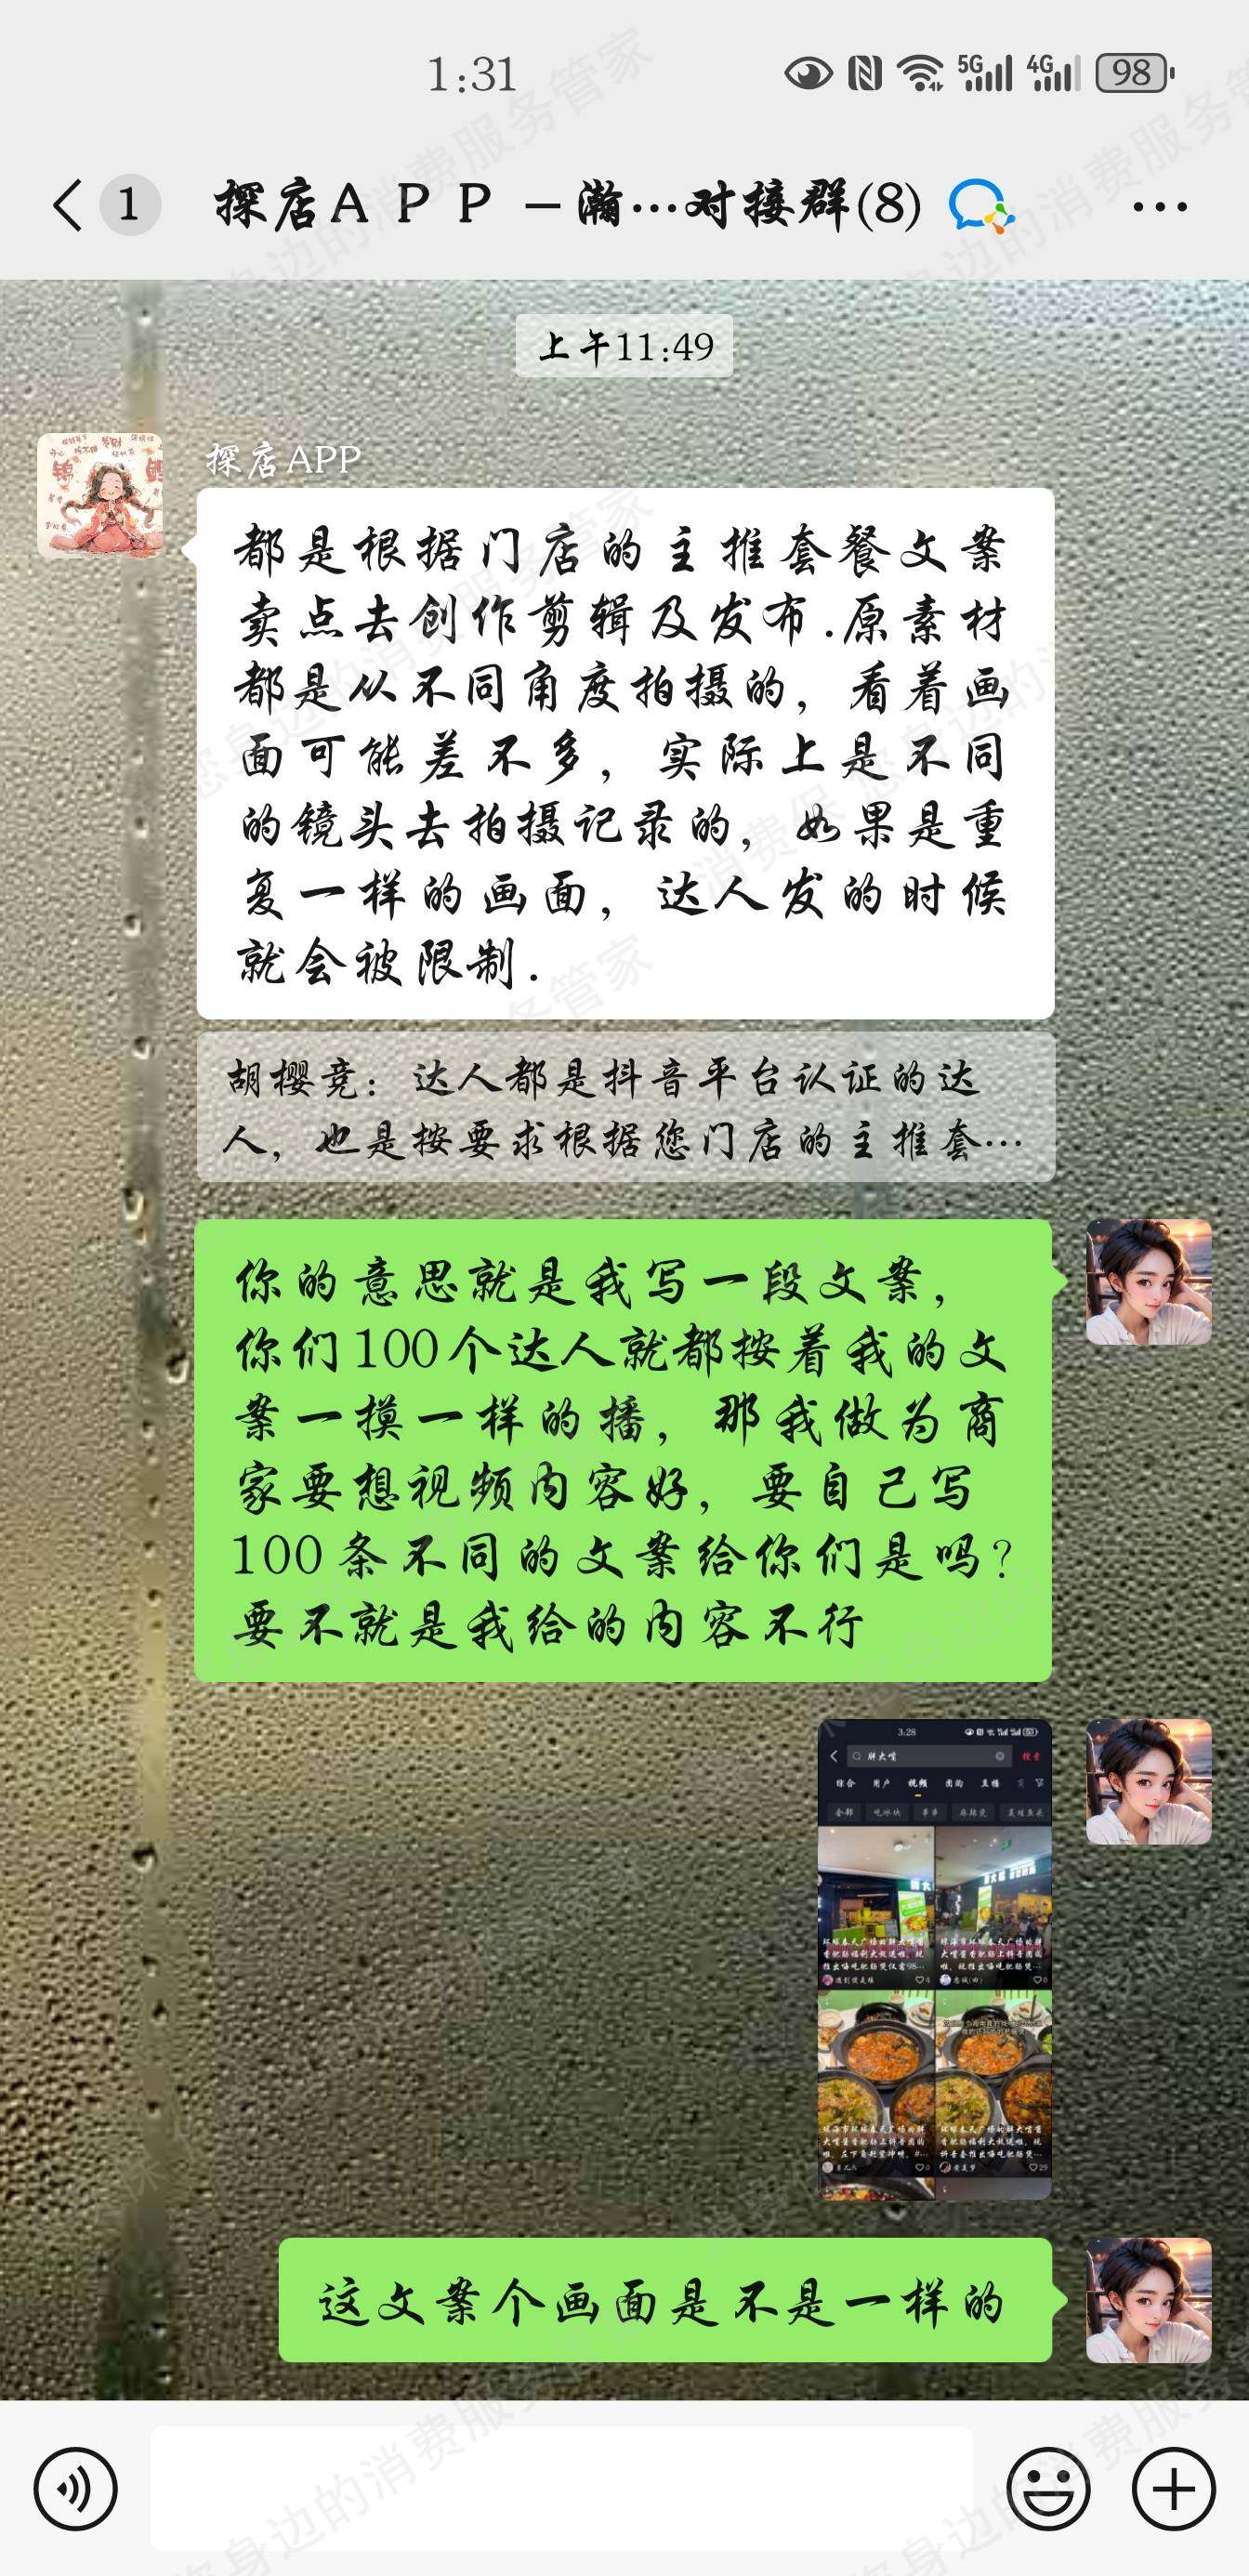 1:31
5G
4G
98
1
探店APP-瀚…对接群(8)
上午11:49
探店APP
都是根据门店的主推套餐文案
卖点去创作剪辑及发布.原素材
都是从不同角度拍摄的，看着画
面可能差不多，实际上是不同
的镜头去拍摄记录的，如果是重
复一样的画面，达人发的时候
就会被限制.
胡樱竞：达人都是抖音平台认证的达
人，也是按要求根据您门店的主推套…
你的意思就是我写一段文案，
你们100个达人就都按着我的文
案一摸一样的播，那我做为商
家要想视频内容好，要自己写
100条不同的文案给你们是吗？
要不就是我给的内容不行
3:28
胖大嘴
搜索
综合 用户 视频 团购 直播
全部 吃冰块 串串 麻辣烫
这文案个画面是不是一样的
您身边的消费服务管家